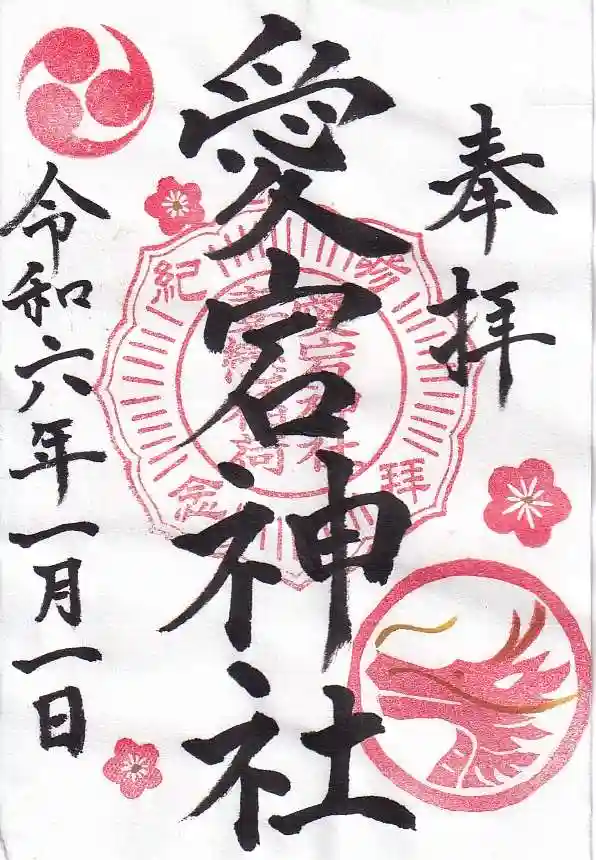 奉拝
愛宕神社
参拝紀念
令和六年一月一日